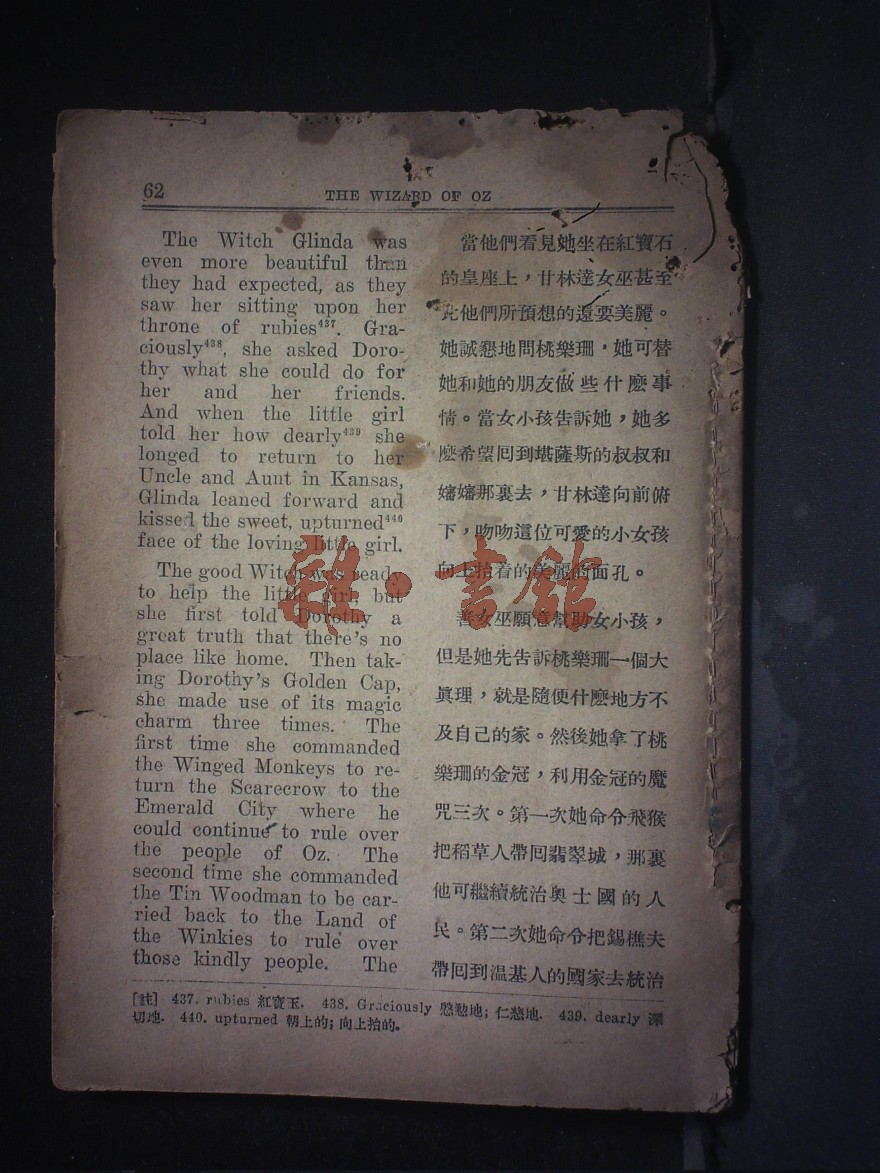 62
THE WIZARD OF OZ
The Witch Glinda was
even more beautiful than
they had expected, as they
saw her sitting upon her
throne of rubies⁴³⁷. Gra-
ciously⁴³⁸, she asked Doro-
thy what she could do for
her and her friends.
And when the little girl
told her how dearly⁴³⁹ she
longed to return to her
Uncle and Aunt in Kansas,
Glinda leaned forward and
kissed the sweet, upturned⁴⁴⁰
face of the loving little girl.
The good Witch was ready
to help the little girl, but
she first told Dorothy a
great truth that there's no
place like home. Then tak-
ing Dorothy's Golden Cap,
she made use of its magic
charm three times. The
first time she commanded
the Winged Monkeys to re-
turn the Scarecrow to the
Emerald City where he
could continue to rule over
the people of Oz. The
second time she commanded
the Tin Woodman to be car-
ried back to the Land of
the Winkies to rule over
those kindly people. The
當他們看見她坐在紅寶石
的皇座上，甘林達女巫甚至
比他們所預想的還要美麗。
她誠懇地問桃樂珊，她可替
她和她的朋友做些什麽事
情。當女小孩告訴她，她多
麽希望囘到堪薩斯的叔叔和
嬸嬸那裏去，甘林達向前俯
下，吻吻這位可愛的小女孩
向上抬着的美麗的面孔。
善女巫願意幫助女小孩，
但是她先告訴桃樂珊一個大
眞理，就是隨便什麽地方不
及自己的家。然後她拿了桃
樂珊的金冠，利用金冠的魔
咒三次。第一次她命令飛猴
把稻草人帶囘翡翠城，那裏
他可繼續統治奧士國的人
民。第二次她命令把錫樵夫
帶囘到温基人的國家去統治
[註] 437. rubies 紅寶玉. 438. Graciously 慇懃地; 仁慈地. 439. dearly 深
切地. 440. upturned 朝上的; 向上抬的.
雜·書館